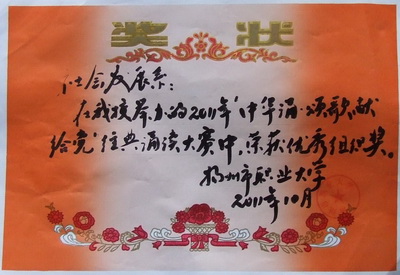 奖状
社会发展系：
在我校举办的2011年"中华诵·颂歌献
给党"经典诵读大赛中，荣获优秀组织奖。
扬州市职业大学
2011年10月